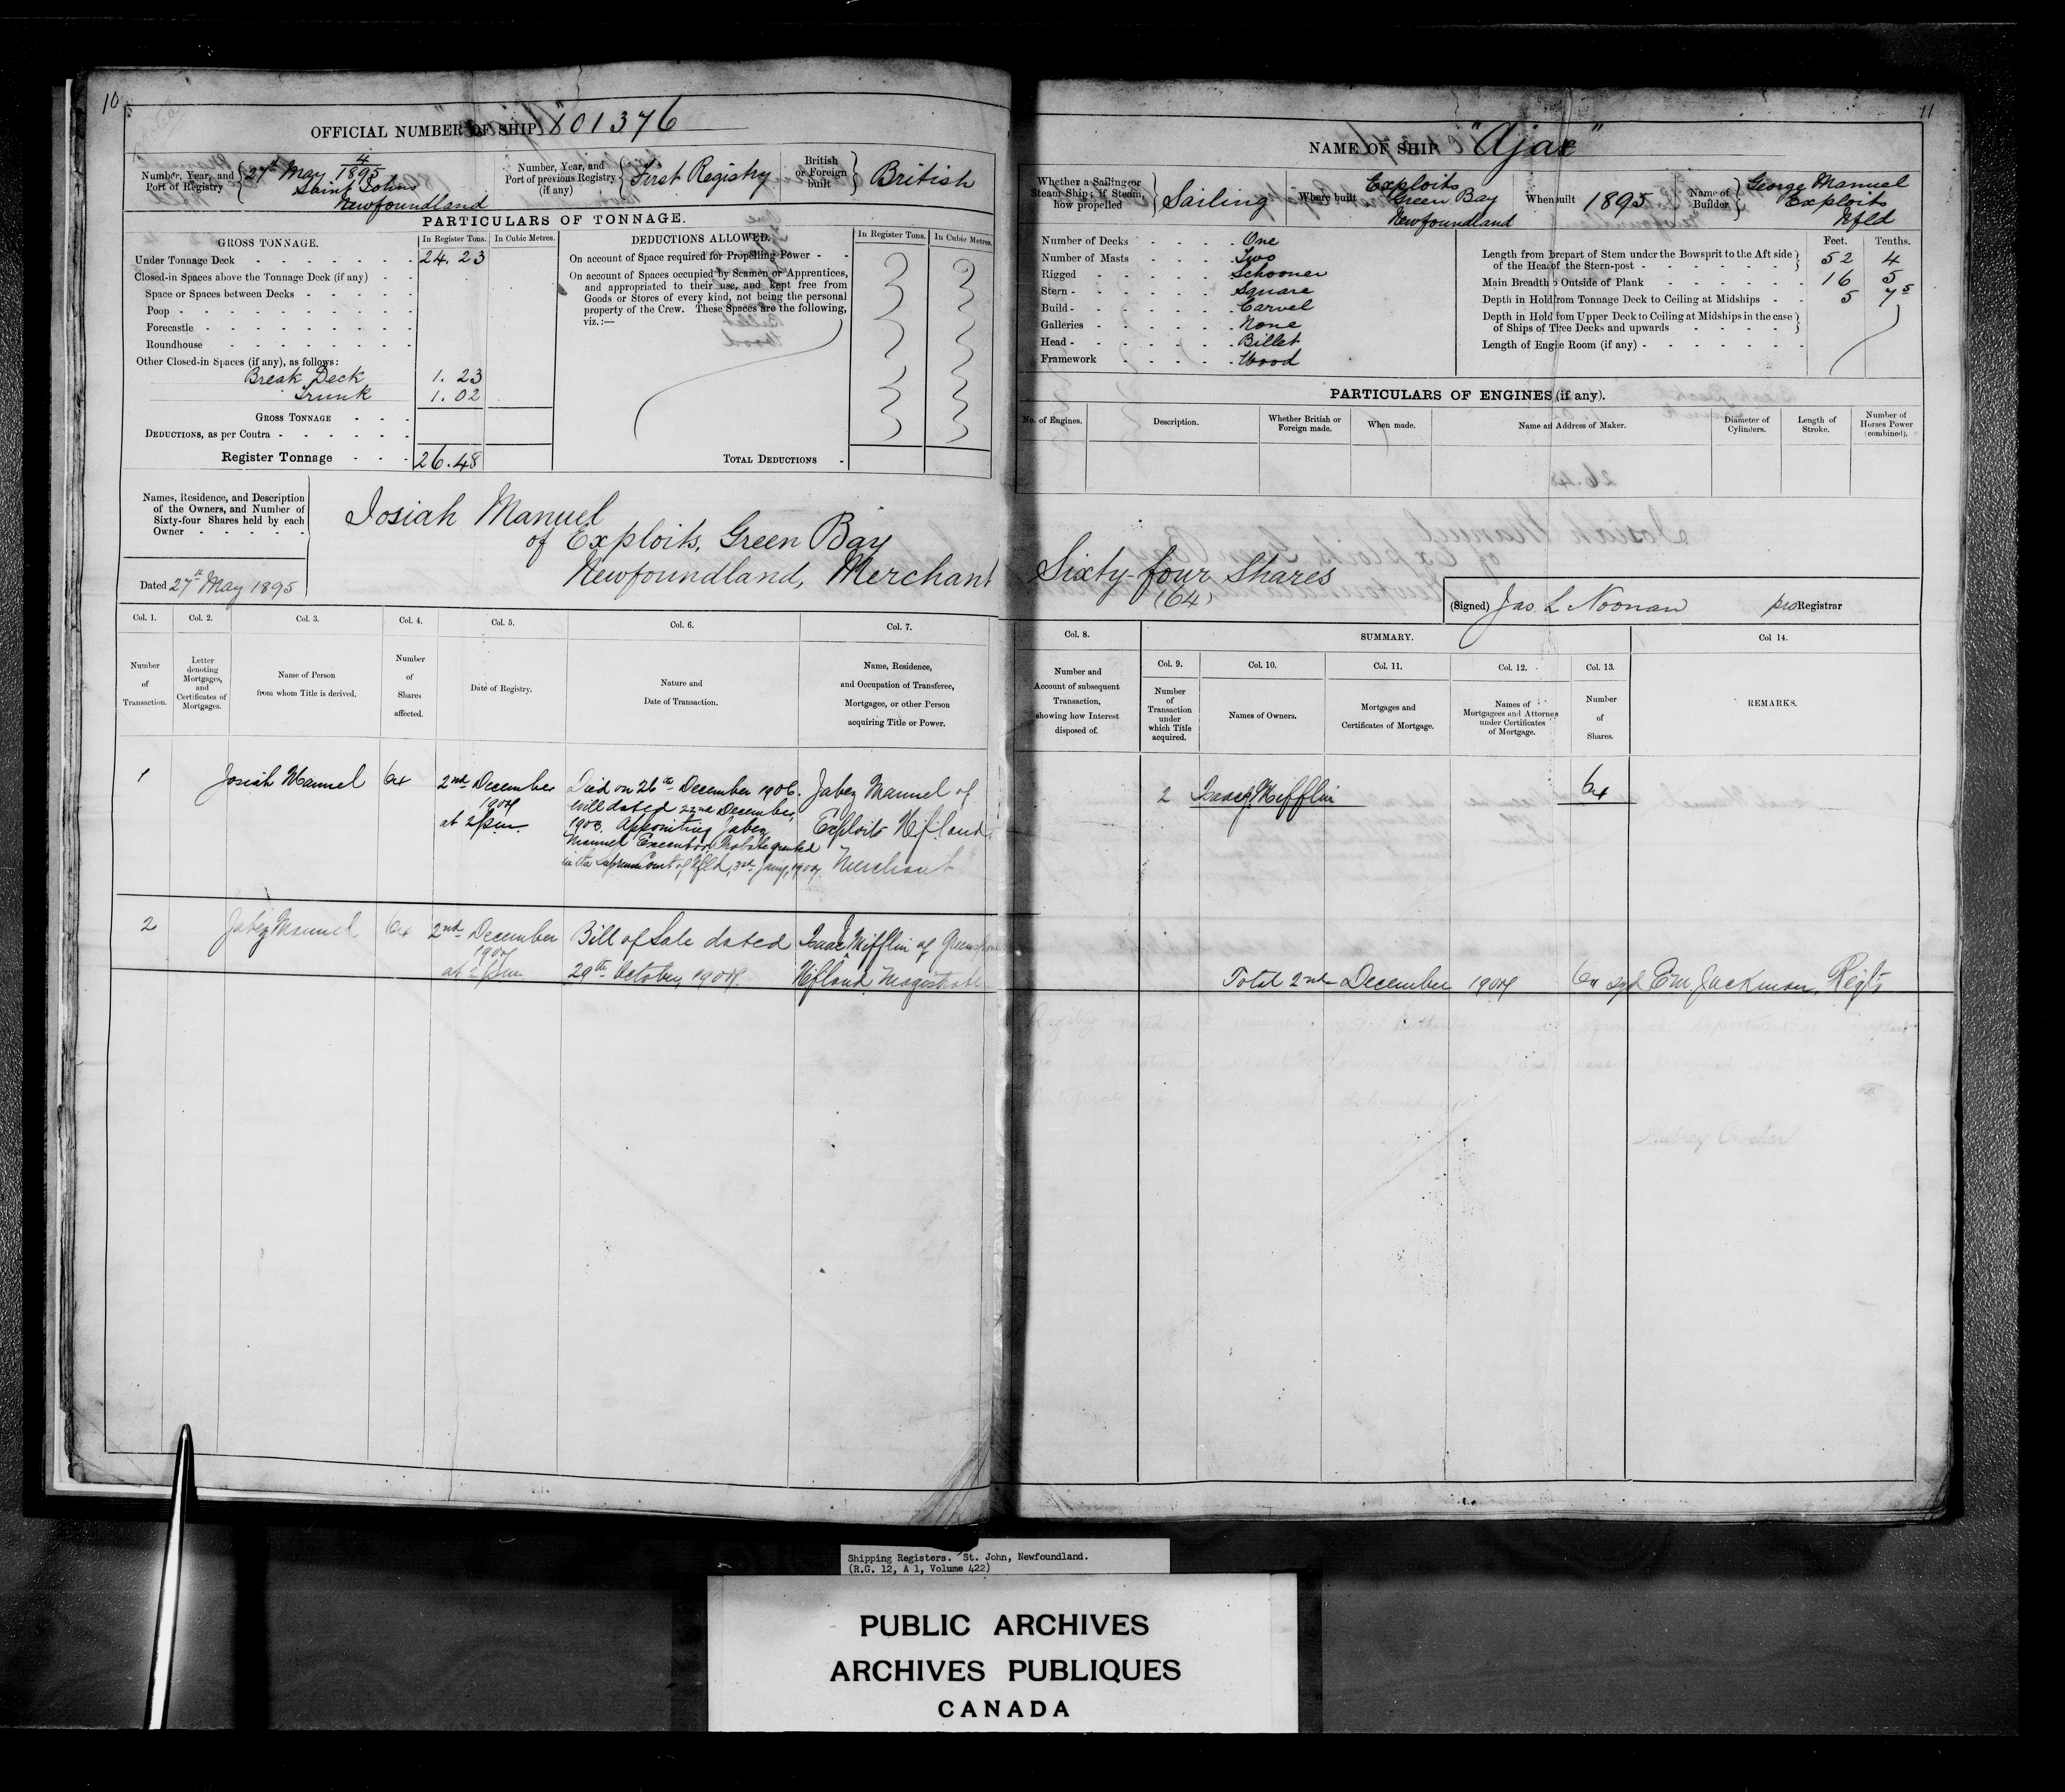 10
OFFICIAL NUMBER OF SHIP 101376
Number, Year, and Port of Registry
4
27th May 1895
Saint Johns
Newfoundland
Number, Year, and Port of previous Registry (if any)
First Registry
British or Foreign built
British
PARTICULARS OF TONNAGE.
GROSS TONNAGE.
In Register Tons.
In Cubic Metres.
Under Tonnage Deck
24.23
Closed-in Spaces above the Tonnage Deck (if any)
Space or Spaces between Decks
Poop
Forecastle
Roundhouse
Other Closed-in Spaces (if any), as follows:
Break Deck 1.23
Trunk 1.02
GROSS TONNAGE
DEDUCTIONS, as per Contra
Register Tonnage 26.48
DEDUCTIONS ALLOWED.
In Register Tons.
In Cubic Metres.
On account of Space required for Propelling Power
On account of Spaces occupied by Seamen or Apprentices,
and appropriated to their use, and kept free from
Goods or Stores of every kind, not being the personal
property of the Crew. These Spaces are the following,
viz.:—
TOTAL DEDUCTIONS
Names, Residence, and Description
of the Owners, and Number of
Sixty-four Shares held by each
Owner
Dated 27th May 1895
Josiah Manuel
of Exploits, Green Bay
Newfoundland, Merchant
Col. 1.
Number
of
Transaction.
Col. 2.
Letter
denoting
Mortgages,
and
Certificates of
Mortgages.
Col. 3.
Name of Person
from whom Title is derived.
Col. 4.
Number
of
Shares
affected.
Col. 5.
Date of Registry.
Col. 6.
Nature and
Date of Transaction.
Col. 7.
Name, Residence,
and Occupation of Transferee,
Mortgagee, or other Person
acquiring Title or Power.
1
Josiah Manuel
64
2nd December
1907
at 2 p.m.
Died on 26th December 1906.
Will dated 22nd December,
1906. Appointing Jabez
Manuel Executor. Probate granted
in the Supreme Court of Nfld, 3rd Jany, 1907.
Jabez Manuel of
Exploits Nfland,
Merchant
2
Jabez Manuel
64
2nd December
1907
at 2 p.m.
Bill of Sale dated
29th October, 1907.
Isaac J Mifflin of
Nfland Magistrate
11
NAME OF SHIP "Ajax"
Whether a Sailing or
Steam Ship; if Steam,
how propelled
Sailing
Where built
Exploits
Green Bay
Newfoundland
When built
1895
Name of Builder
George Manuel
Exploits
Nfld
Number of Decks One
Number of Masts Two
Rigged Schooner
Stern Square
Build Carvel
Galleries None
Head Billet
Framework Wood
Feet. Tenths.
Length from forepart of Stem under the Bowsprit to the Aft side
of the Head of the Stern-post 52 4
Main Breadth to Outside of Plank 16 5
Depth in Hold from Tonnage Deck to Ceiling at Midships 5 75
Depth in Hold from Upper Deck to Ceiling at Midships in the case
of Ships of Three Decks and upwards
Length of Engine Room (if any)
PARTICULARS OF ENGINES (if any).
No. of Engines.
Description.
Whether British or
Foreign made.
When made.
Name and Address of Maker.
Diameter of
Cylinders.
Length of
Stroke.
Number of
Horses Power
(combined).
Sixty-four Shares
(64)
(Signed) Jas. L Noonan pro Registrar
Col. 8.
Number and
Account of subsequent
Transaction,
showing how Interest
disposed of.
SUMMARY.
Col. 9.
Number
of
Transaction
under
which Title
acquired.
Col. 10.
Names of Owners.
Col. 11.
Mortgages and
Certificates of Mortgage.
Col. 12.
Names of
Mortgagees and Attorneys
under Certificates
of Mortgage.
Col. 13.
Number
of
Shares.
Col 14.
REMARKS.
2
Isaac J. Mifflin
64
Total 2nd December 1907
64 sgd E M. Jackman, Regtr
Shipping Registers. St. John, Newfoundland.
(R.G. 12, A 1, Volume 422)
PUBLIC ARCHIVES
ARCHIVES PUBLIQUES
CANADA